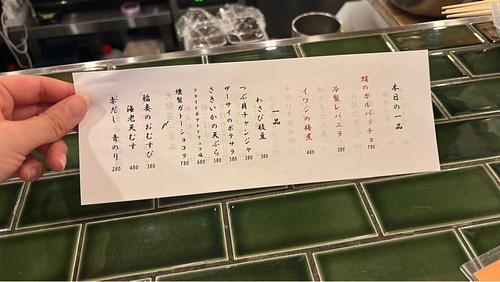 本日の一品
蛸のガルパッチョ 780
冷製レバニラ 580
イワシの梅煮 480
一品
わさび枝豆 380
つぶ貝チャンジャ 380
ザーサイのポテサラ 500
さきいかの天ぷら 580
フライドポテトトリュフ塩 680
燻製ガトーショコラ 780
〆
稲妻のおむすび 380
海老天むす 480
赤だし 青のり 280